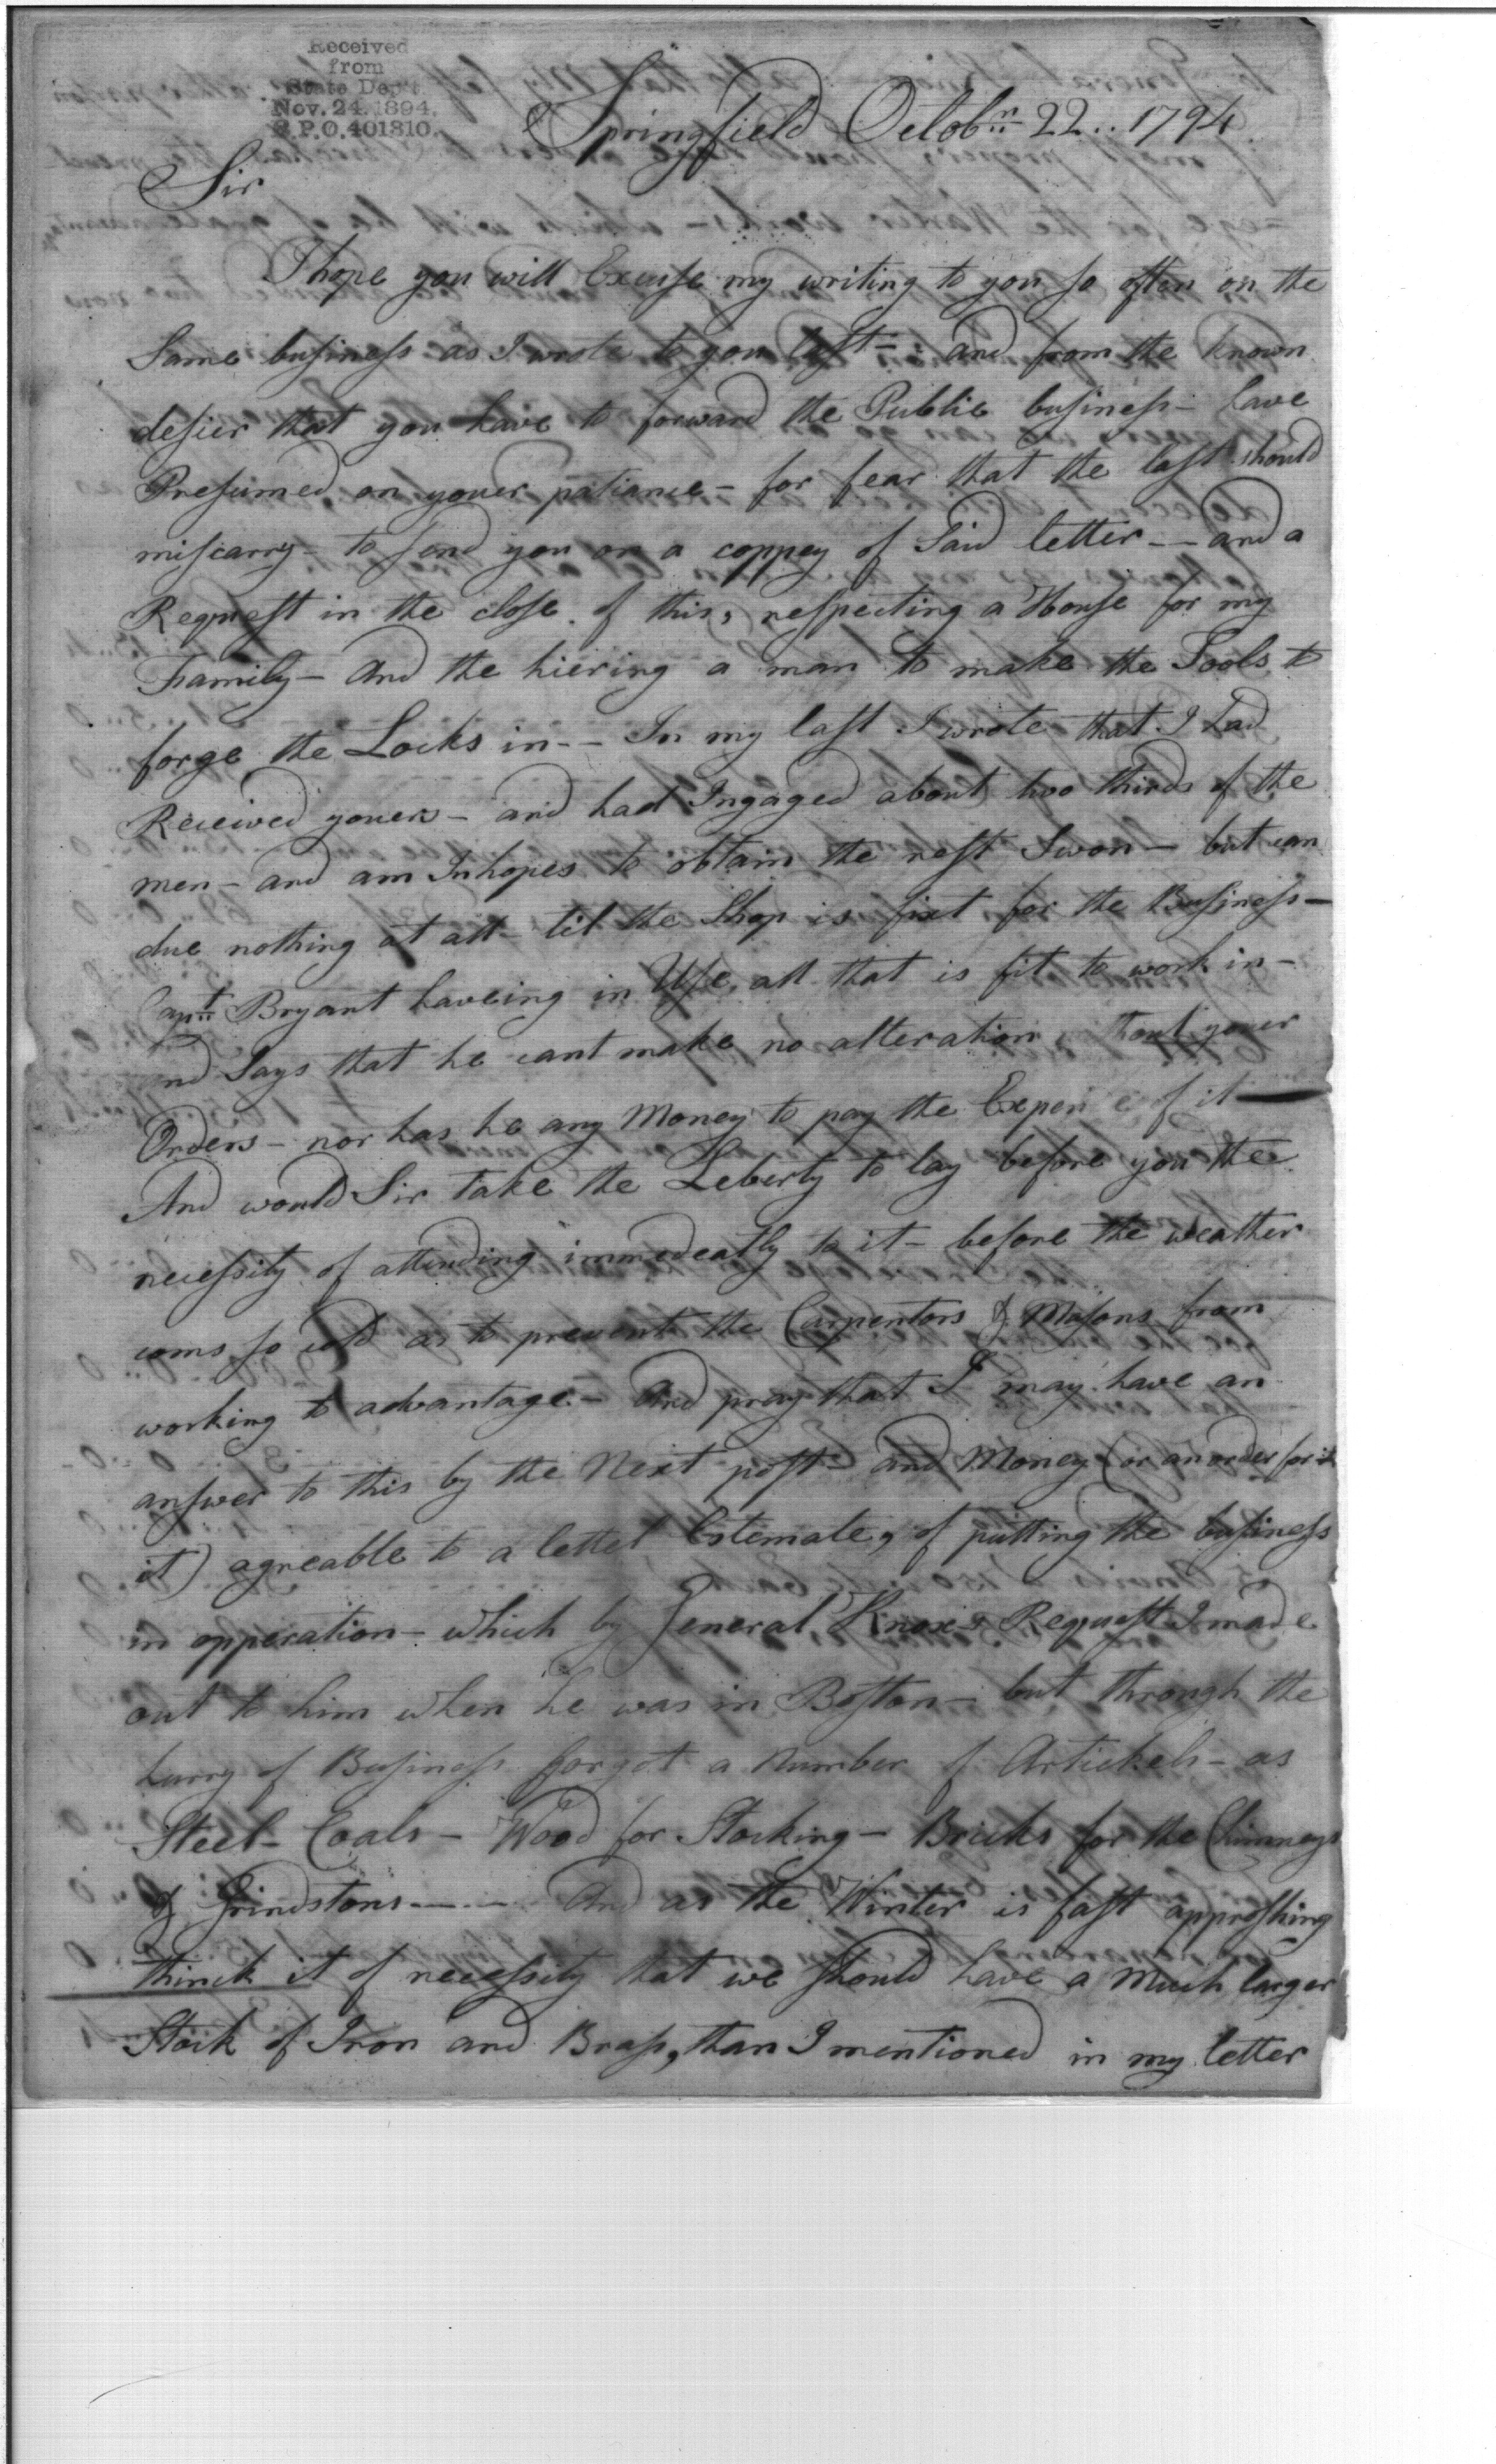 Received
from
State Dep't
Nov. 24. 1894.
S.P.O. 401310.
Springfield Octobr 22.. 1794
Sir
I hope you will Excuse my writing to you so often on the
Same business as I wrote to you last - and from the known
desier that you have to forward the Public business - have
Presumed on youer patiance - for fear that the last should
miscarry - to send you on a coppey of Said letter -- and a
Request in the close of this, respecting a House for my
Family - And the hiering a man to make the Tools to
forge the Locks in -- In my last I wrote that I had
Received youers - and had Ingaged about two thirds of the
men - and am Inhopes to obtain the rest Swon - but can
due nothing at all - til the Shop is fixt for the Business -
Capt Bryant haveing in Use, all that is fit to work in -
and Says that he cant make no alteration thout youer
Orders - nor has he any Money to pay the Expen e of it -
And would Sir take the Leberty to lay before you the
necessity of attending immedeatly to it - before the weather
coms so cold as to prevent the Carpentors & Masons from
working to advantage - And pray that I may have an
answer to this by the Next post - and Money (or an order for it
it) agreable to a lettel Estemate, of putting the business
in opperation - which by General Knoxs Request I made
out to him when he was in Boston - but through the
hurry of Business forgot a number of Artickels - as
Steel - Coals - Wood for Stocking - Bricks for the Chimneys
& Grindstons ---- And as the Winter is fast approthing
think it of necessity that we should have a Much larger
Stock of Iron and Brass, than I mentioned in my letter